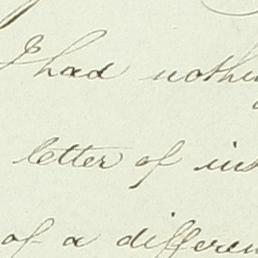 I had nothi
letter of ins
of a differen